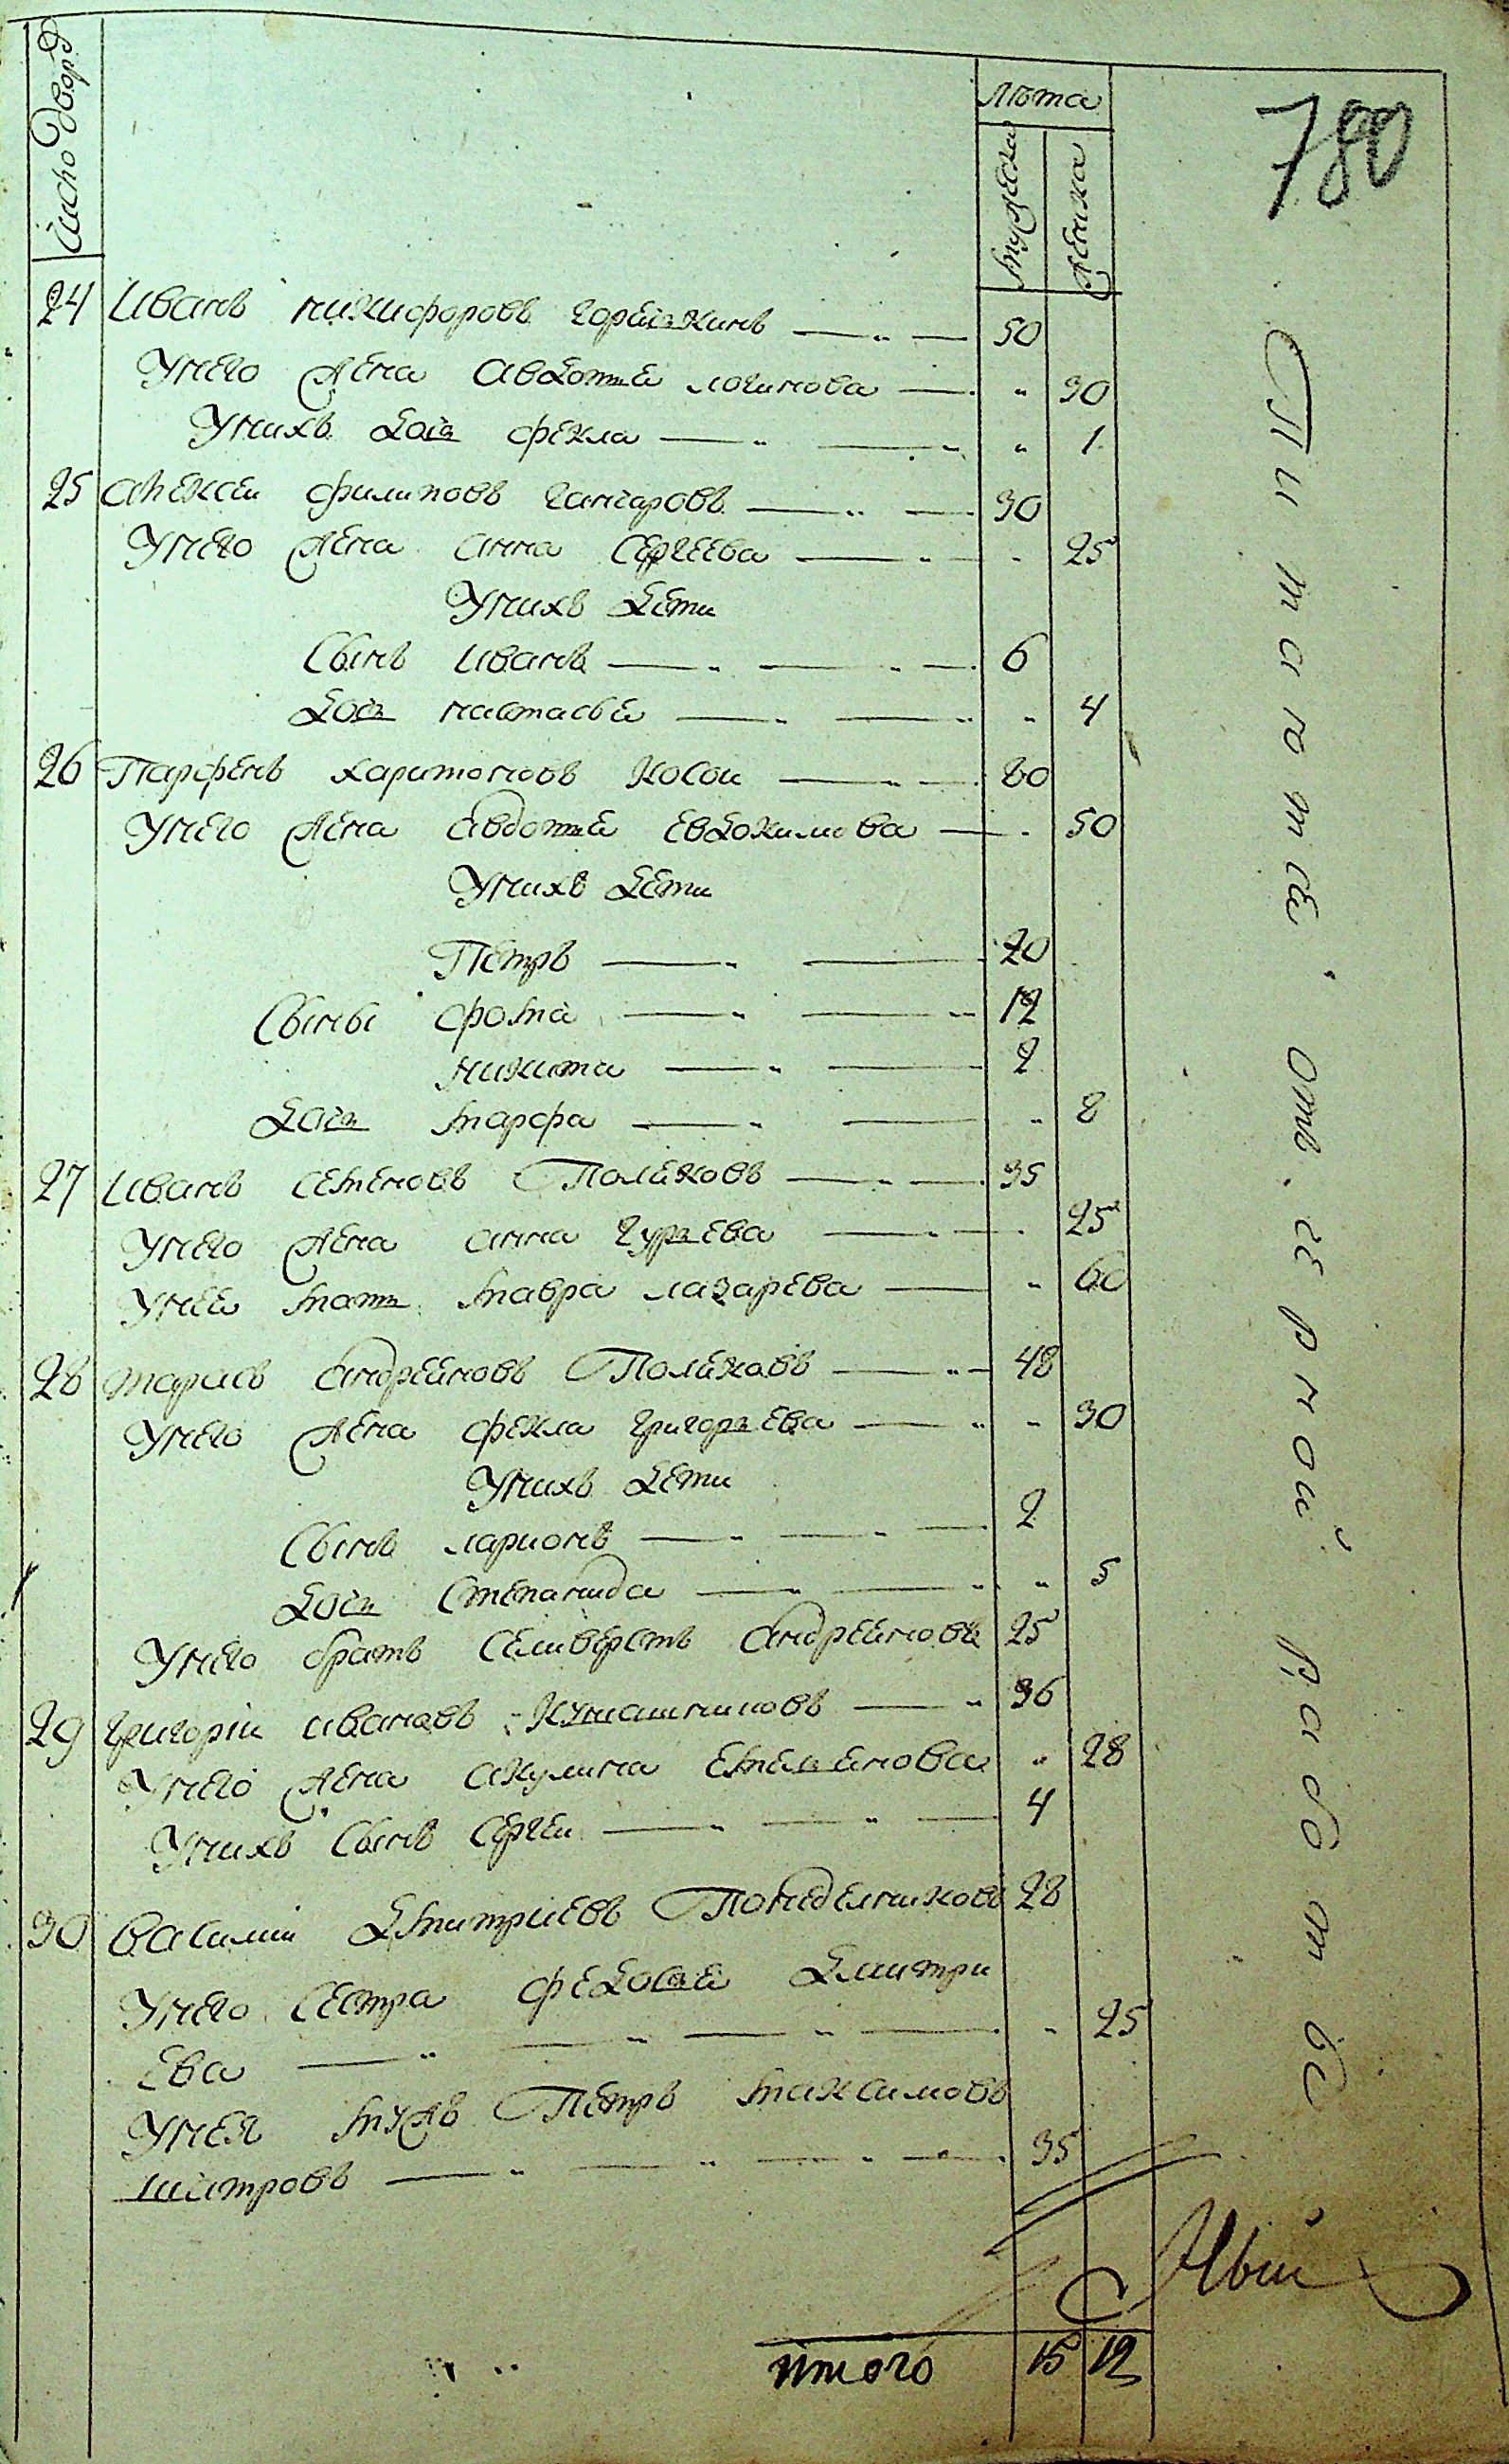 Число дворъ
лѣта
мужеска
женска
780
24 Иванъ никифоровъ горбачкинъ 50
У него жена авдотья логинова " 30
У нихъ дочь фекла " 1
25 алексеи филиповъ гончаровъ 30
У него жена анна Сергеева " 25
У нихъ дети
Сынъ иванъ 6
дочь настасья " 4
26 Парфенъ харитоновъ косои 60
У него жена авдотья евдокимова " 50
У нихъ дети
Петръ 20
Сыны фома 12
никита 2
дочь марфа " 8
27 иванъ семеновъ Поляковъ 35
У него жена анна гурьева " 25
У нея мать мавра лазарева " 60
28 тарасъ андреяновъ Поляковъ 48
У него жена фекла григорьева " 30
У нихъ дети
Сынъ ларионъ 2
дочь Степанида " 5
У него братъ Селиверстъ андреяновъ 25
29 григоріи ивановъ 36
У него жена акулина емельянова " 28
У нихъ Сынъ Сергеи 4
30 василии дмитриевъ Понеделниковъ 28
У него Сестра федосья дмитри
ева " 25
У нея мужъ Петръ максимовъ
шатровъ 35
итого 15 12
отъ черной работы